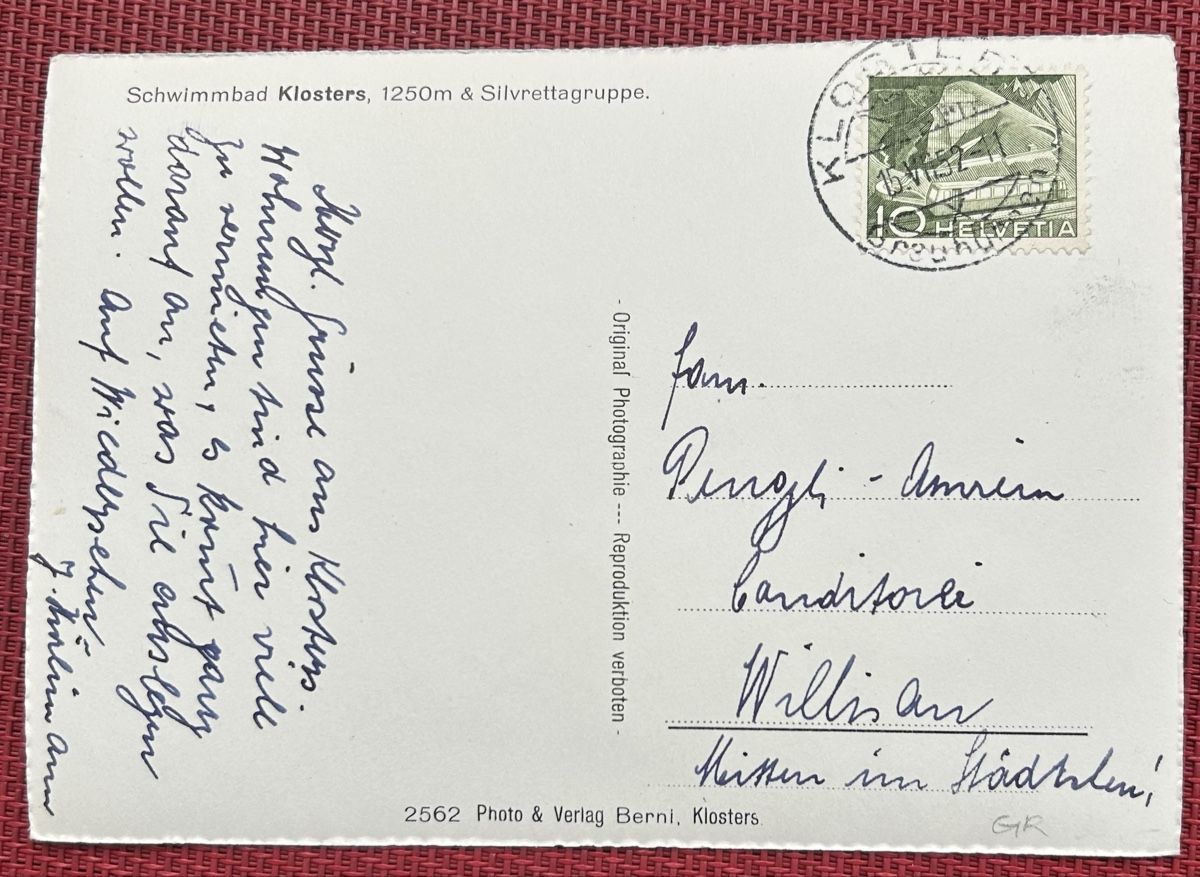 Schwimmbad Klosters, 1250m & Silvrettagruppe.
KLOSTERS
15.VII.52-11
Graubünden
10 HELVETIA
Herzl. Grüsse aus Klosters.
Wohnungen sind hier viele
zu vermieten, es kommt ganz
darauf an, was Sie auslegen
wollen. Auf Wiedersehen
- Original Photographie --- Reproduktion verboten -
Fam.
- Amrein
Conditorei
Willisau
Mitten im Städtchen!
2562 Photo & Verlag Berni, Klosters.
GR